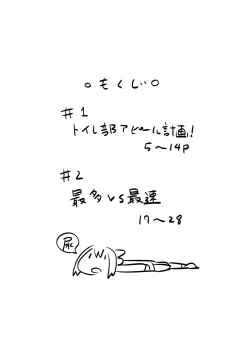 ○もくじ○
#1
トイレ部アピール計画!
5〜14P
#2
最多vs最速
17〜28
尿